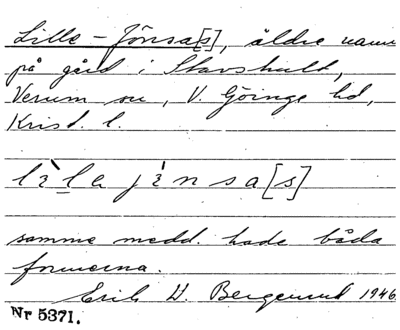 Lille-Jönsa[s], äldre namn
på gård i Stavshult,
Verum sn, V. Göinge hd,
Krist. l.
lìla jínsa[s]
samme medd. hade båda
formerna.
Erik W. Bergemud 1946.
Nr 5371.